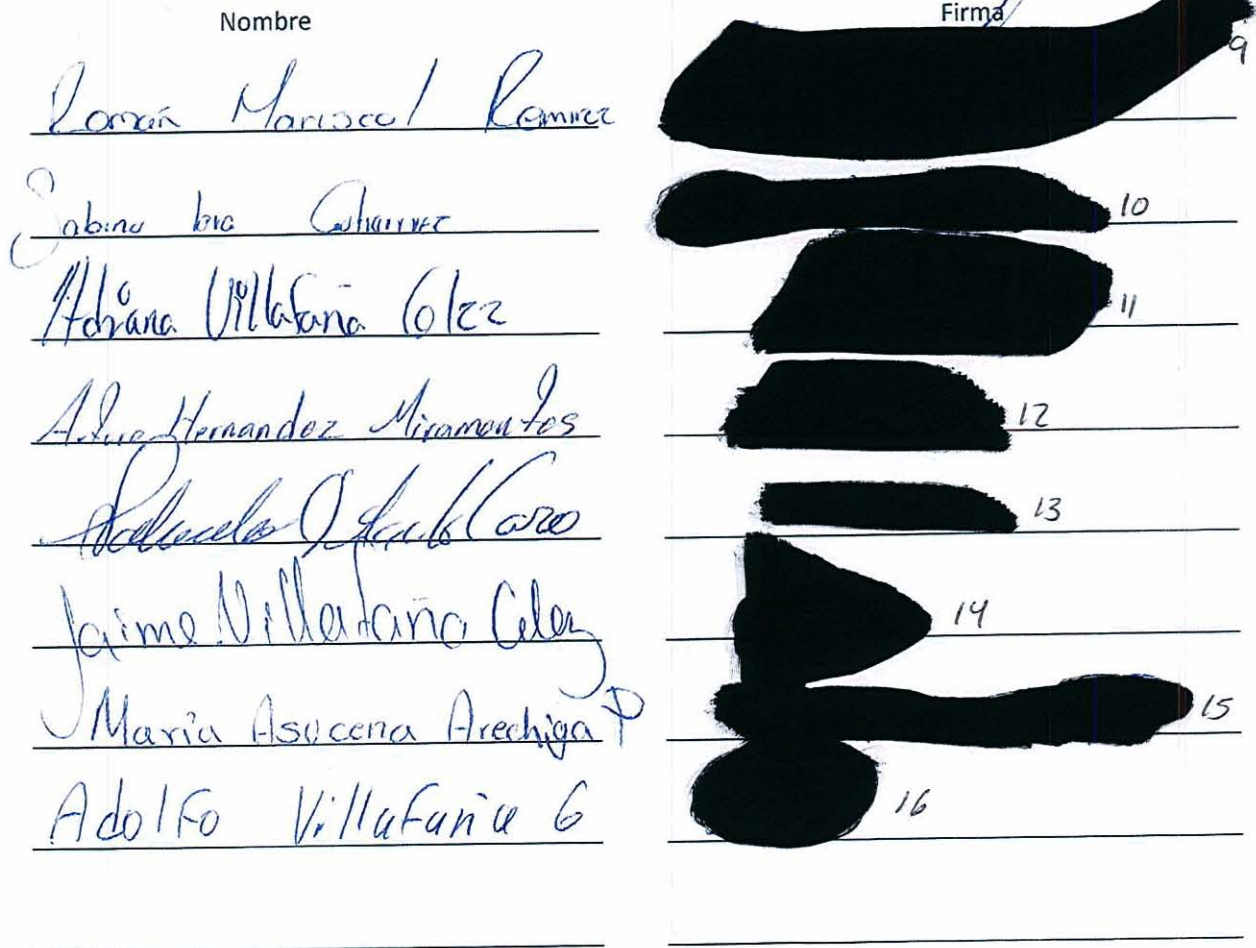 Nombre Firma
Román Mariscal Ramirez 9
Sabino 10
Adriana Villafaña 11
Hernandez Miramontes 12
Caro 13
Jaime Villafaña Celez 14
María Asucena Arechiga P 15
Adolfo Villafaña G 16